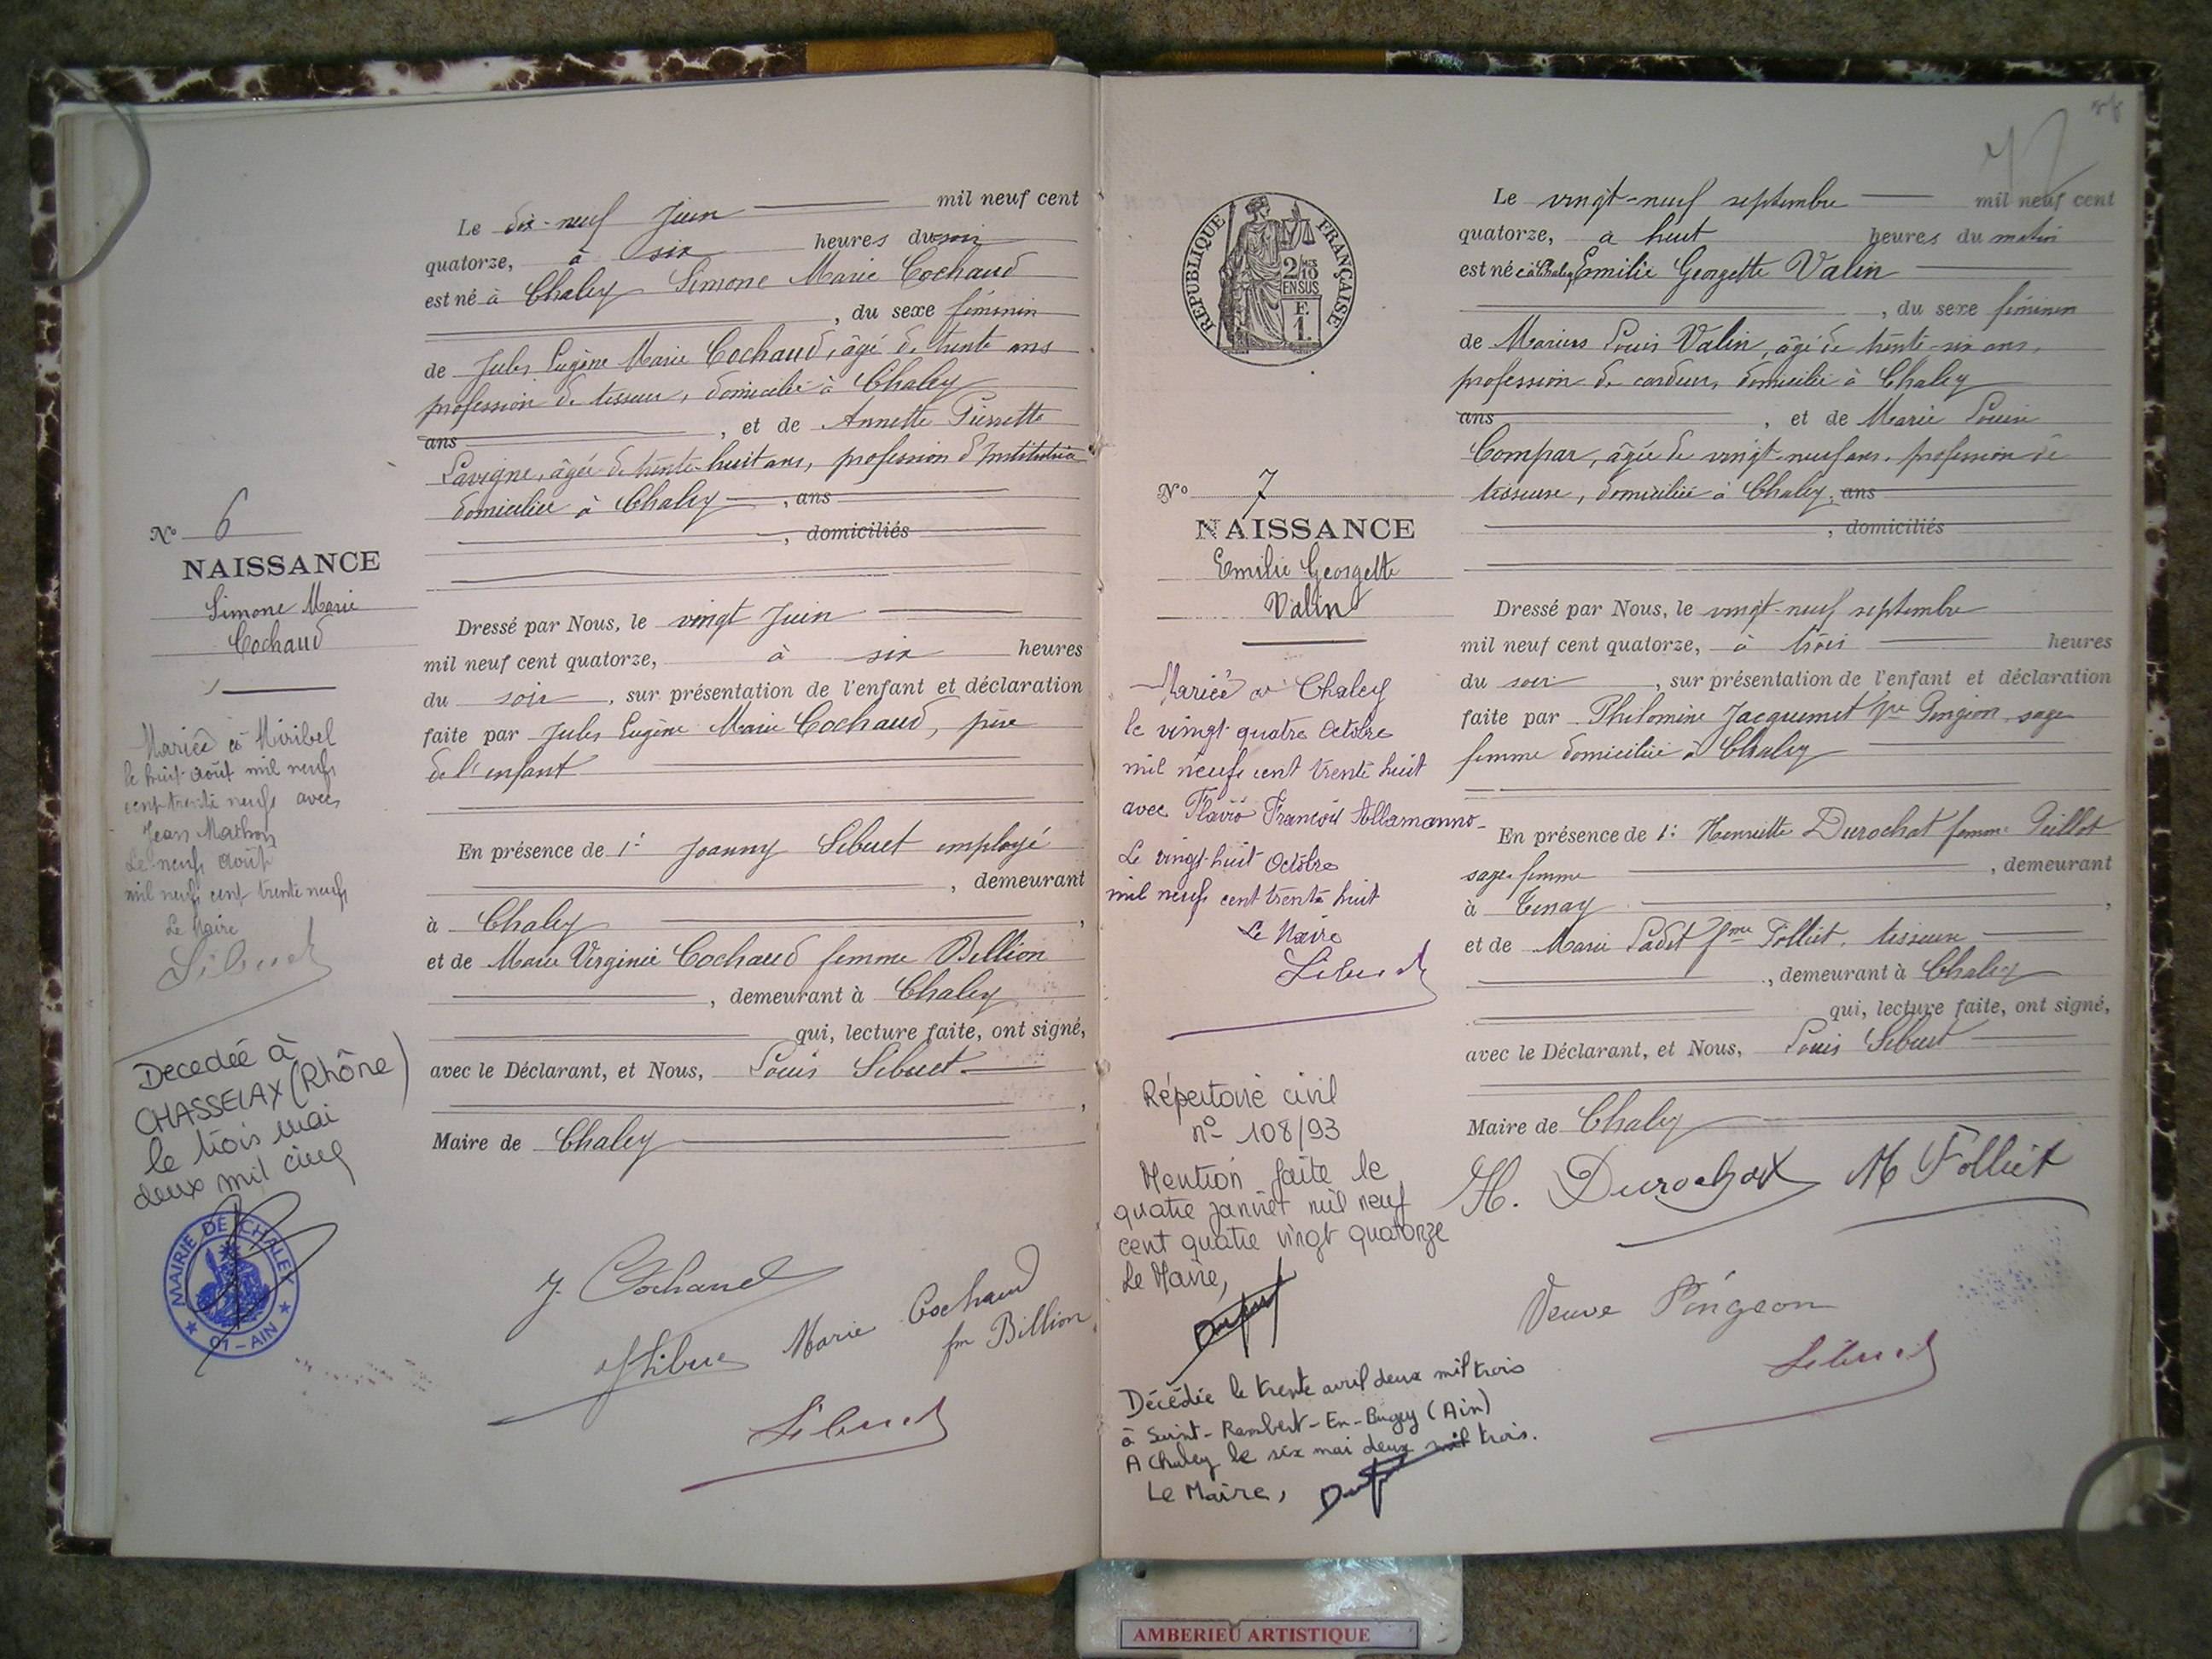 N° 6
NAISSANCE
Simone Marie
Cochaud
Mariée à Miribel
le huit août mil neuf
cent trente neuf avec
Jean Mathon
Le neuf août
mil neuf cent trente neuf
Le Maire
Sibuet
Decedée à
CHASSELAX (Rhône)
le trois mai
deux mil cinq
MAIRIE DE CHALEY
01 - AIN
Le dix-neuf Juin mil neuf cent
quatorze, à six heures du soir
est né à Chaley Simone Marie Cochaud
, du sexe féminin
de Jules Eugène Marie Cochaud, âgé de trente ans
profession de tisseur, domicilié à Chaley
ans , et de Annette Pierrette
Lavigne, âgée de trente-huit ans, profession d'Institutrice
domiciliée à Chaley , ans
, domiciliés
Dressé par Nous, le vingt Juin
mil neuf cent quatorze, à six heures
du soir , sur présentation de l'enfant et déclaration
faite par Jules Eugène Marie Cochaud, père
de l'enfant
En présence de 1° Joanny Sibuet employé
, demeurant
à Chaley ,
et de Marie Virginie Cochaud femme Billion
, demeurant à Chaley
qui, lecture faite, ont signé,
avec le Déclarant, et Nous, Louis Sibuet
,
Maire de Chaley
J. Cochaud
J Sibuet Marie Cochaud
fm Billion
Sibuet
RÉPUBLIQUE FRANÇAISE
2/10
EN SUS
F.
1.
N° 7
NAISSANCE
Emilie Georgette
Valin
Mariée à Chaley
le vingt quatre Octobre
mil neuf cent trente huit
avec Flavio François Allamanno
Le vingt huit Octobre
mil neuf cent trente huit
Le Maire
Sibuet
Répertoire civil
n° 108/93
Mention faite le
quatre janvier mil neuf
cent quatre vingt quatorze
Le Maire,
Décédée le trente avril deux mil trois
à Saint-Rambert-En-Bugey (Ain)
A Chaley le six mai deux mil trois.
Le Maire,
Le vingt-neuf septembre mil neuf cent
quatorze, à huit heures du matin
est née à Chaley Emilie Georgette Valin
, du sexe féminin
de Marius Louis Valin, âgé de trente-six ans,
profession de cardeur, domicilié à Chaley
ans , et de Marie Louise
Compar, âgée de vingt-neuf ans, profession de
tisseuse, domiciliée à Chaley, ans
, domiciliés
Dressé par Nous, le vingt-neuf septembre
mil neuf cent quatorze, à trois heures
du soir , sur présentation de l'enfant et déclaration
faite par Philomène Jacquemet Vve Pingeon, sage
femme domiciliée à Chaley
En présence de 1° Henriette Durochat femme Guillot
sage femme , demeurant
à Tenay ,
et de Marie Ladet fme Folliet, tisseuse
, demeurant à Chaley
qui, lecture faite, ont signé,
avec le Déclarant, et Nous, Louis Sibuet
Maire de Chaley
H. Durochat M Folliet
Veuve Pingeon
Sibuet
AMBERIEU ARTISTIQUE